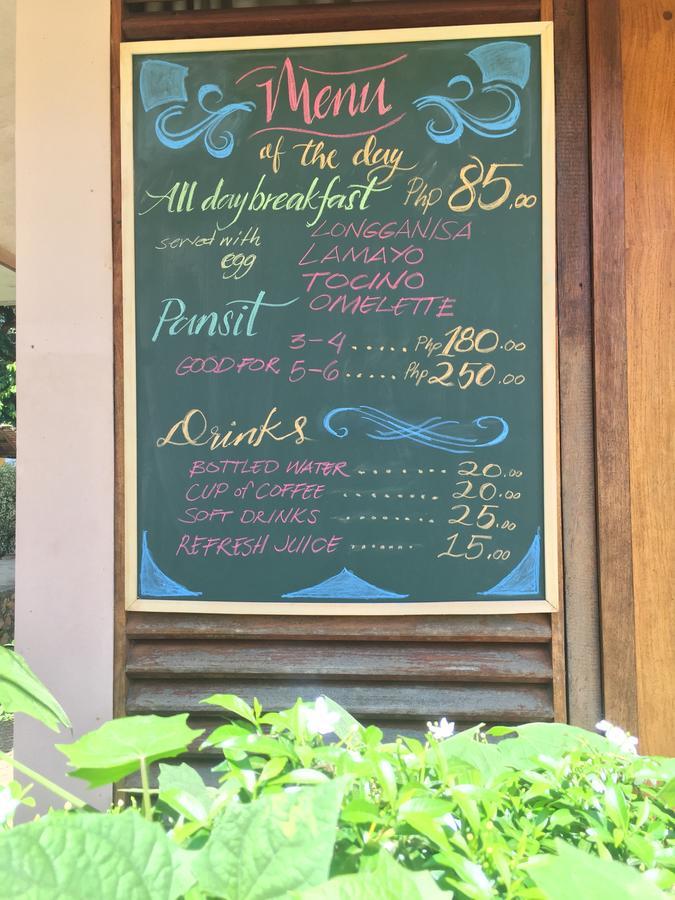 Menu
of the day
All day breakfast Php 85.00
served with egg
LONGGANISA
LAMAYO
TOCINO
OMELETTE
Pansit
GOOD FOR 3-4 ..... Php 180.00
5-6 ..... Php 250.00
Drinks
BOTTLED WATER ........ 20.00
CUP of COFFEE ......... 20.00
SOFT DRINKS ......... 25.00
REFRESH JUICE ....... 15.00